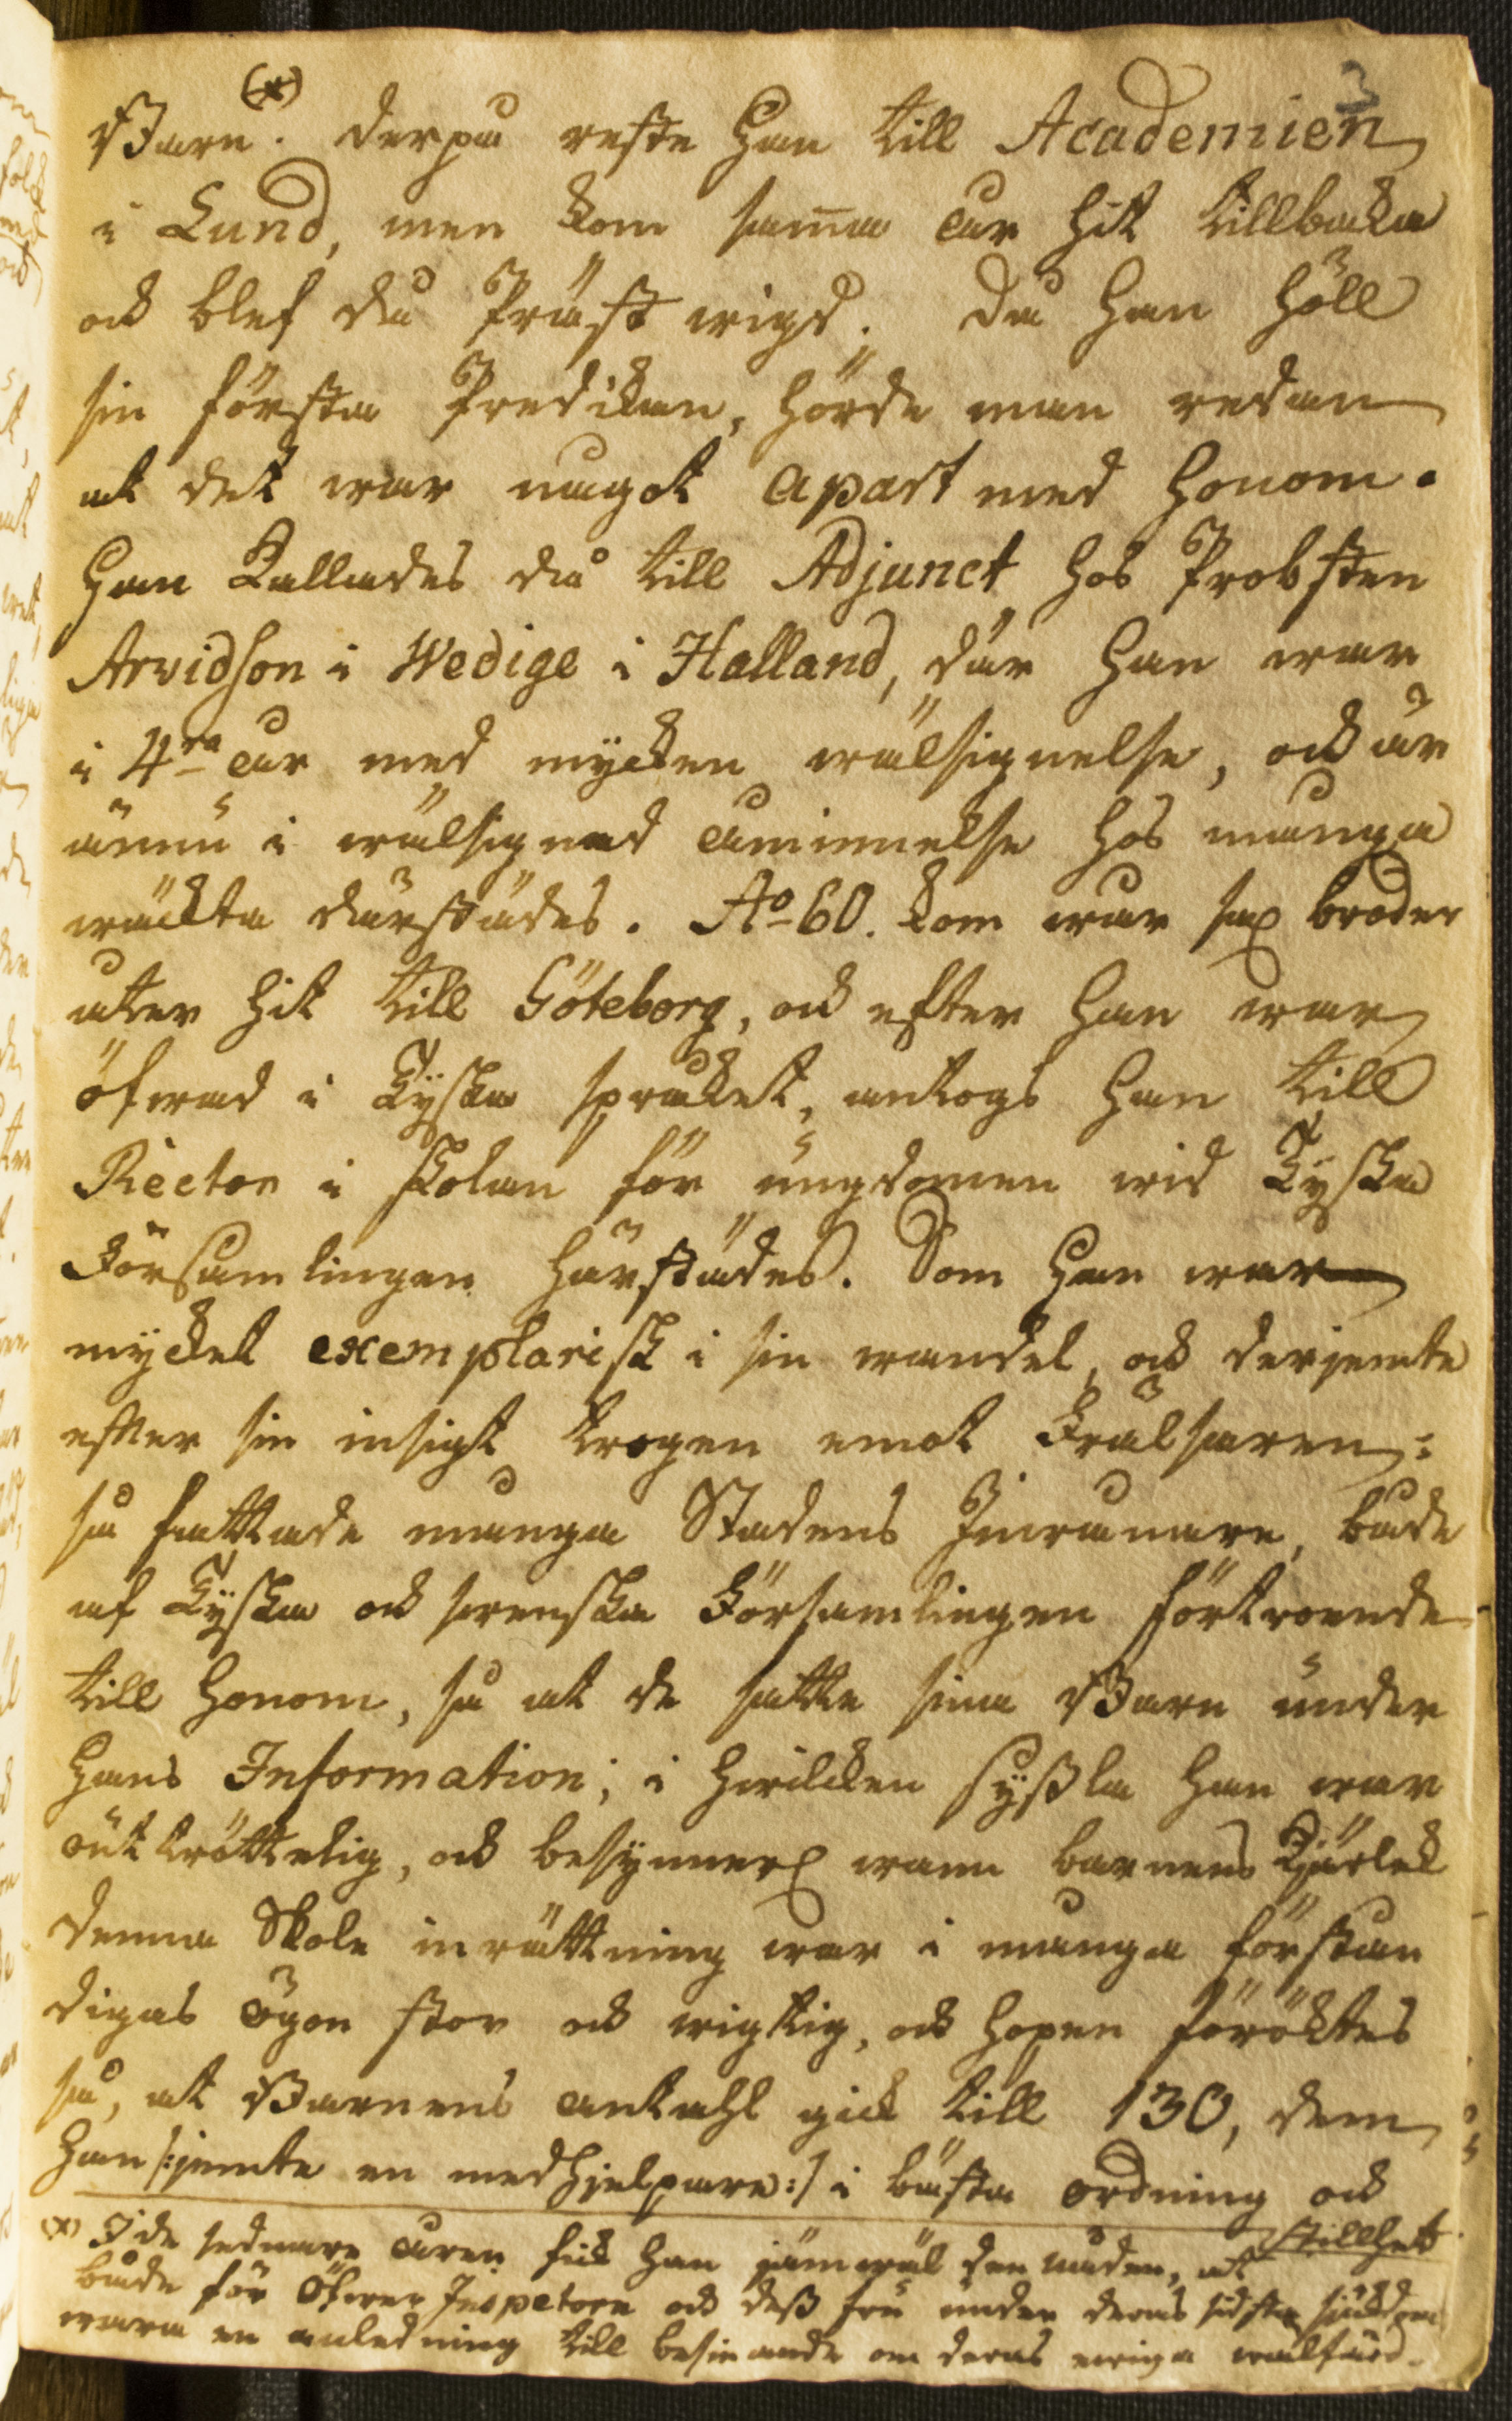 3
Barn (*). derpå reste Han till Academien
i Lund, men kom sam̄a år hit tillbaka
ock blef då Präst wigd. då Han höll
sin första Predikan, hörde man redan
at det war något apart med Honom.
Han kallades då till Adjunct hos Probsten
Arvidson i Wedige i Halland, där Han war
i 4ra år med mycken wälsignelse, ock är
ännu i wälsignad åminnelse hos många
wäckta därstädes. Ao 60. kom wår sal broder
åter hit till Göteborg, ock efter Han war
öfwad i Tyska språket, antogs Han till
Rector i skolan för ungdomen wid Tyska
Församlingen härstädes. Som Han war
mycket exemplarisk i sin wandel, ock derjemte
efter sin insigt trogen emot Frälsaren:
så fattade många Stadens Inwånare, både
af Tyska ock swenska Församlingen förtroende
till Honom, så at de satte sina Barn under
Hans Information; i hwilcken syßla han war
outtröttelig, ock besynnerl wann barnens Kjärlek
denna Skole inrättning war i många förstån
digas ögon stor ock wigtig, ock hopen föröktes
så, at Barnens antahl gick till 130, dem
Han /:jemte en medhjelpare:/ i bästa ordning ock
stillhet
(*) I de sednare åren fick Han jämwäl den nåden, at
både för Öfwer Inspetorn ock deß fru under deras sidsta sjukdom
wara en anledning till besinnande om deras ewiga wälfärd.